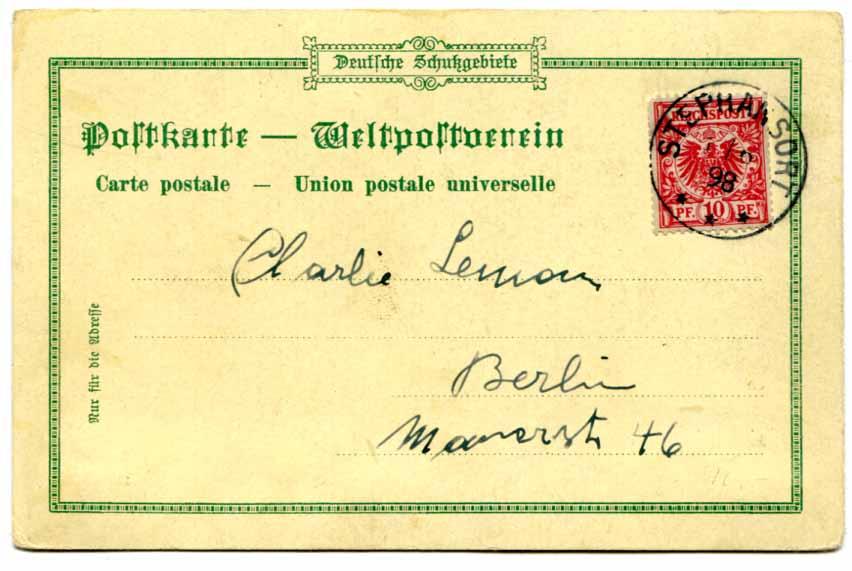 Deutsche Schutzgebiete
Postkarte — Weltpostverein
Carte postale — Union postale universelle
REICHSPOST
10
PF. PF.
STEPHANSORT
98
Charlie
Berlin
Mauerstr 46
Nur für die Adresse